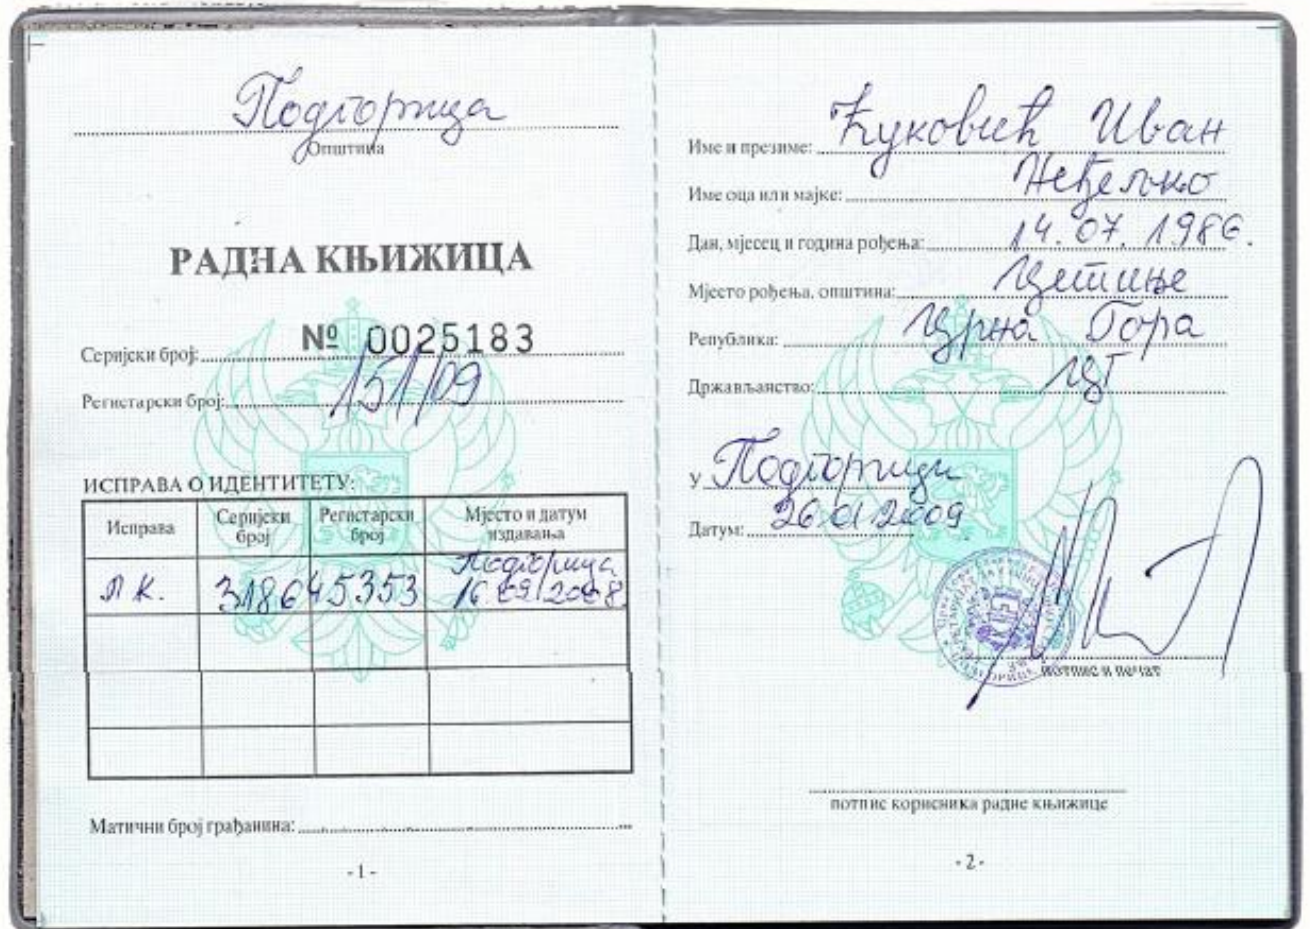 Подгорица
Општина
РАДНА КЊИЖИЦА
Серијски број: № 0025183
Регистарски број: 151/09
ИСПРАВА О ИДЕНТИТЕТУ:
Исправа Серијски број Регистарски број Мјесто и датум издавања
Л.К. 318645353 Подгорица 16.09.2008.
Матични број грађанина:
- 1 -
Име и презиме: Ћуковић Иван
Име оца или мајке: Неђељко
Дан, мјесец и година рођења: 14.07.1986.
Мјесто рођења, општина: Цетиње
Република: Црна Гора
Држављанство: ЦГ
У Подгорици
Датум: 26.01.2009
потпис и печат
потпис корисника радне књижице
- 2 -